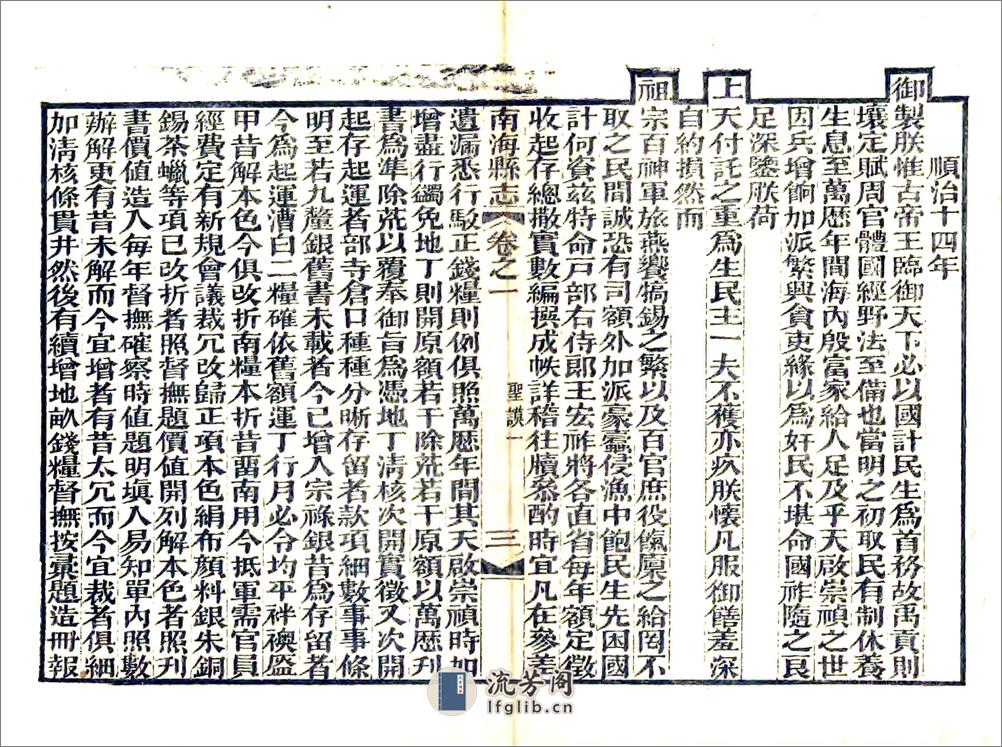 順治十四年
御製朕惟古帝王臨御天下必以國計民生爲首務故禹貢則
壤定賦周官體國經野法至備也當明之初取民有制休養
生息至萬歷年間海內殷富家給人足及乎天啟崇禎之世
因兵增餉加派繁興貪吏緣以爲奸民不堪命國祚隨之良
足深鑒朕荷
上天付託之重爲生民主一夫不獲亦疚朕懷凡服御饍羞深
自約損然而
祖宗百神軍旅燕饗犒錫之繁以及百官庶役餼廩之給罔不
取之民間誠恐有司額外加派豪蠹侵漁中飽民生先困國
計何資茲特命戸部右侍郎王宏祚將各直省每年額定徵
收起存總撒實數編撰成帙詳稽往牘叅酌時宜凡在參差
南海縣志
卷之一
聖謨一
三
遺漏悉行駁正錢糧則例俱照萬歷年間其天啟崇禎時加
增盡行蠲免地丁則開原額若干除荒若干原額以萬歷刋
書爲準除荒以覆奉御旨爲憑地丁淸核次開實徵又次開
起存起運者部寺倉口種種分晰存留者款項細數事事條
明至若九釐銀舊書未載者今已增入宗祿銀昔爲存留者
今爲起運漕白二糧確依舊額運丁行月必令均平袢襖盔
甲昔解本色今俱改折南糧本折昔畱南用今抵軍需官員
經費定有新規會議裁冗改歸正項本色絹布顏料銀朱銅
錫茶蠟等項已改折者照督撫題價值開列解本色者照刋
書價值造入每年督撫確察時值題明塡入易知單內照數
辦解更有昔未解而今宜增者有昔太冗而今宜裁者俱細
加淸核條貫井然後有續增地畝錢糧督撫按彙題造冊報
流芳阁
lfglib.cn